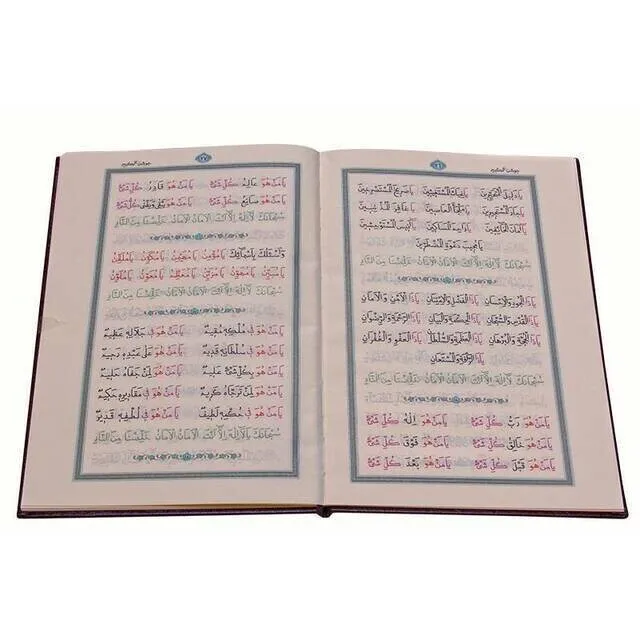 جوشن الكبير ٢٦
يَا دَلِيلَ الْمُتَحَيِّرِينَ يَا غِيَاثَ الْمُسْتَغِيثِينَ يَا صَرِيخَ الْمُسْتَصْرِخِينَ
يَا جَارَ الْمُسْتَجِيرِينَ يَا مَلْجَأَ الْعَاصِينَ يَا غَافِرَ الْمُذْنِبِينَ
يَا أَمَانَ الْخَائِفِينَ يَا رَاحِمَ الْمَسَاكِينِ يَا أَنِيسَ الْمُسْتَوْحِشِينَ
يَا مُجِيبَ دَعْوَةِ الْمُضْطَرِّينَ
سُبْحَانَكَ يَا لَا إِلٰهَ إِلَّا أَنْتَ الْأَمَانُ الْأَمَانُ خَلِّصْنَا مِنَ النَّارِ
يَا ذَا الْجُودِ وَالْإِحْسَانِ يَا ذَا الْفَضْلِ وَالْاِمْتِنَانِ يَا ذَا الْأَمْنِ وَالْأَمَانِ
يَا ذَا الْقُدْسِ وَالسُّبْحَانِ يَا ذَا الْحِكْمَةِ وَالْبَيَانِ يَا ذَا الرَّحْمَةِ وَالرِّضْوَانِ
يَا ذَا الْحُجَّةِ وَالْبُرْهَانِ يَا ذَا الْعَظَمَةِ وَالسُّلْطَانِ يَا ذَا الْعَفْوِ وَالْغُفْرَانِ
يَا ذَا الرَّأْفَةِ وَالْمُسْتَعَانِ
سُبْحَانَكَ يَا لَا إِلٰهَ إِلَّا أَنْتَ الْأَمَانُ الْأَمَانُ خَلِّصْنَا مِنَ النَّارِ
يَا مَنْ هُوَ رَبُّ كُلِّ شَيْءٍ يَا مَنْ هُوَ إِلٰهُ كُلِّ شَيْءٍ
يَا مَنْ هُوَ خَالِقُ كُلِّ شَيْءٍ يَا مَنْ هُوَ فَوْقَ كُلِّ شَيْءٍ
يَا مَنْ هُوَ قَبْلَ كُلِّ شَيْءٍ يَا مَنْ هُوَ بَعْدَ كُلِّ شَيْءٍ
٢٧ جوشن الكبير
يَا مَنْ هُوَ عَالِمُ كُلِّ شَيْءٍ يَا مَنْ هُوَ قَادِرُ كُلِّ شَيْءٍ
يَا مَنْ هُوَ صَانِعُ كُلِّ شَيْءٍ يَا مَنْ هُوَ كُلِّ شَيْءٍ
سُبْحَانَكَ يَا لَا إِلٰهَ إِلَّا أَنْتَ الْأَمَانُ الْأَمَانُ خَلِّصْنَا مِنَ النَّارِ
وَأَسْئَلُكَ بِأَسْمَائِكَ يَا مُؤْمِنُ يَا مُهَيْمِنُ يَا مُكَوِّنُ يَا مُلَقِّنُ
يَا مُبَيِّنُ يَا مُهَوِّنُ يَا مُزَيِّنُ يَا مُعَظِّمُ يَا مُعَوِّنُ يَا مُلَوِّنُ
سُبْحَانَكَ يَا لَا إِلٰهَ إِلَّا أَنْتَ الْأَمَانُ الْأَمَانُ خَلِّصْنَا مِنَ النَّارِ
يَا مَنْ هُوَ فِي مُلْكِهِ مُقِيمٌ يَا مَنْ هُوَ فِي جَلَالِهِ عَظِيمٌ
يَا مَنْ هُوَ فِي سُلْطَانِهِ قَدِيمٌ يَا مَنْ هُوَ عَلَى عِبَادِهِ رَحِيمٌ
يَا مَنْ هُوَ بِكُلِّ شَيْءٍ عَلِيمٌ يَا مَنْ هُوَ
يَا مَنْ هُوَ لِمَنْ تَرَجَّاهُ كَرِيمٌ يَا مَنْ هُوَ فِي مَقَادِيرِهِ حَكِيمٌ
يَا مَنْ هُوَ فِي حُكْمِهِ لَطِيفٌ يَا مَنْ هُوَ فِي لُطْفِهِ قَدِيرٌ
سُبْحَانَكَ يَا لَا إِلٰهَ إِلَّا أَنْتَ الْأَمَانُ الْأَمَانُ خَلِّصْنَا مِنَ النَّارِ